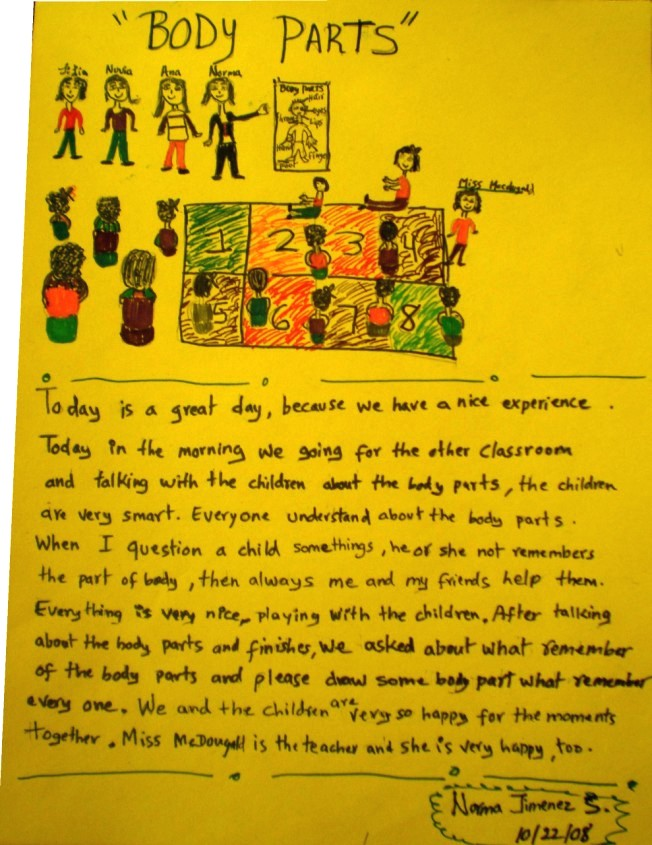 "BODY PARTS"
Nuvia Ana Norma
Body Parts
Hair
eyes
Lips
Hand
Finger
Miss Macdogald
1 2 3 4
5 6 7 8
Today is a great day, because we have a nice experience.
Today in the morning we going for the other classroom
and talking with the children about the body parts, the children
are very smart. Everyone understand about the body parts.
When I question a child somethings, he or she not remembers
the part of body, then always me and my friends help them.
Everything is very nice, playing with the children. After talking
about the body parts and finishes, we asked about what remember
of the body parts and please draw some body part what remember
every one. We and the children are very so happy for the moments
together. Miss McDougald is the teacher and she is very happy, too.
Norma Jimenez S.
10/22/08